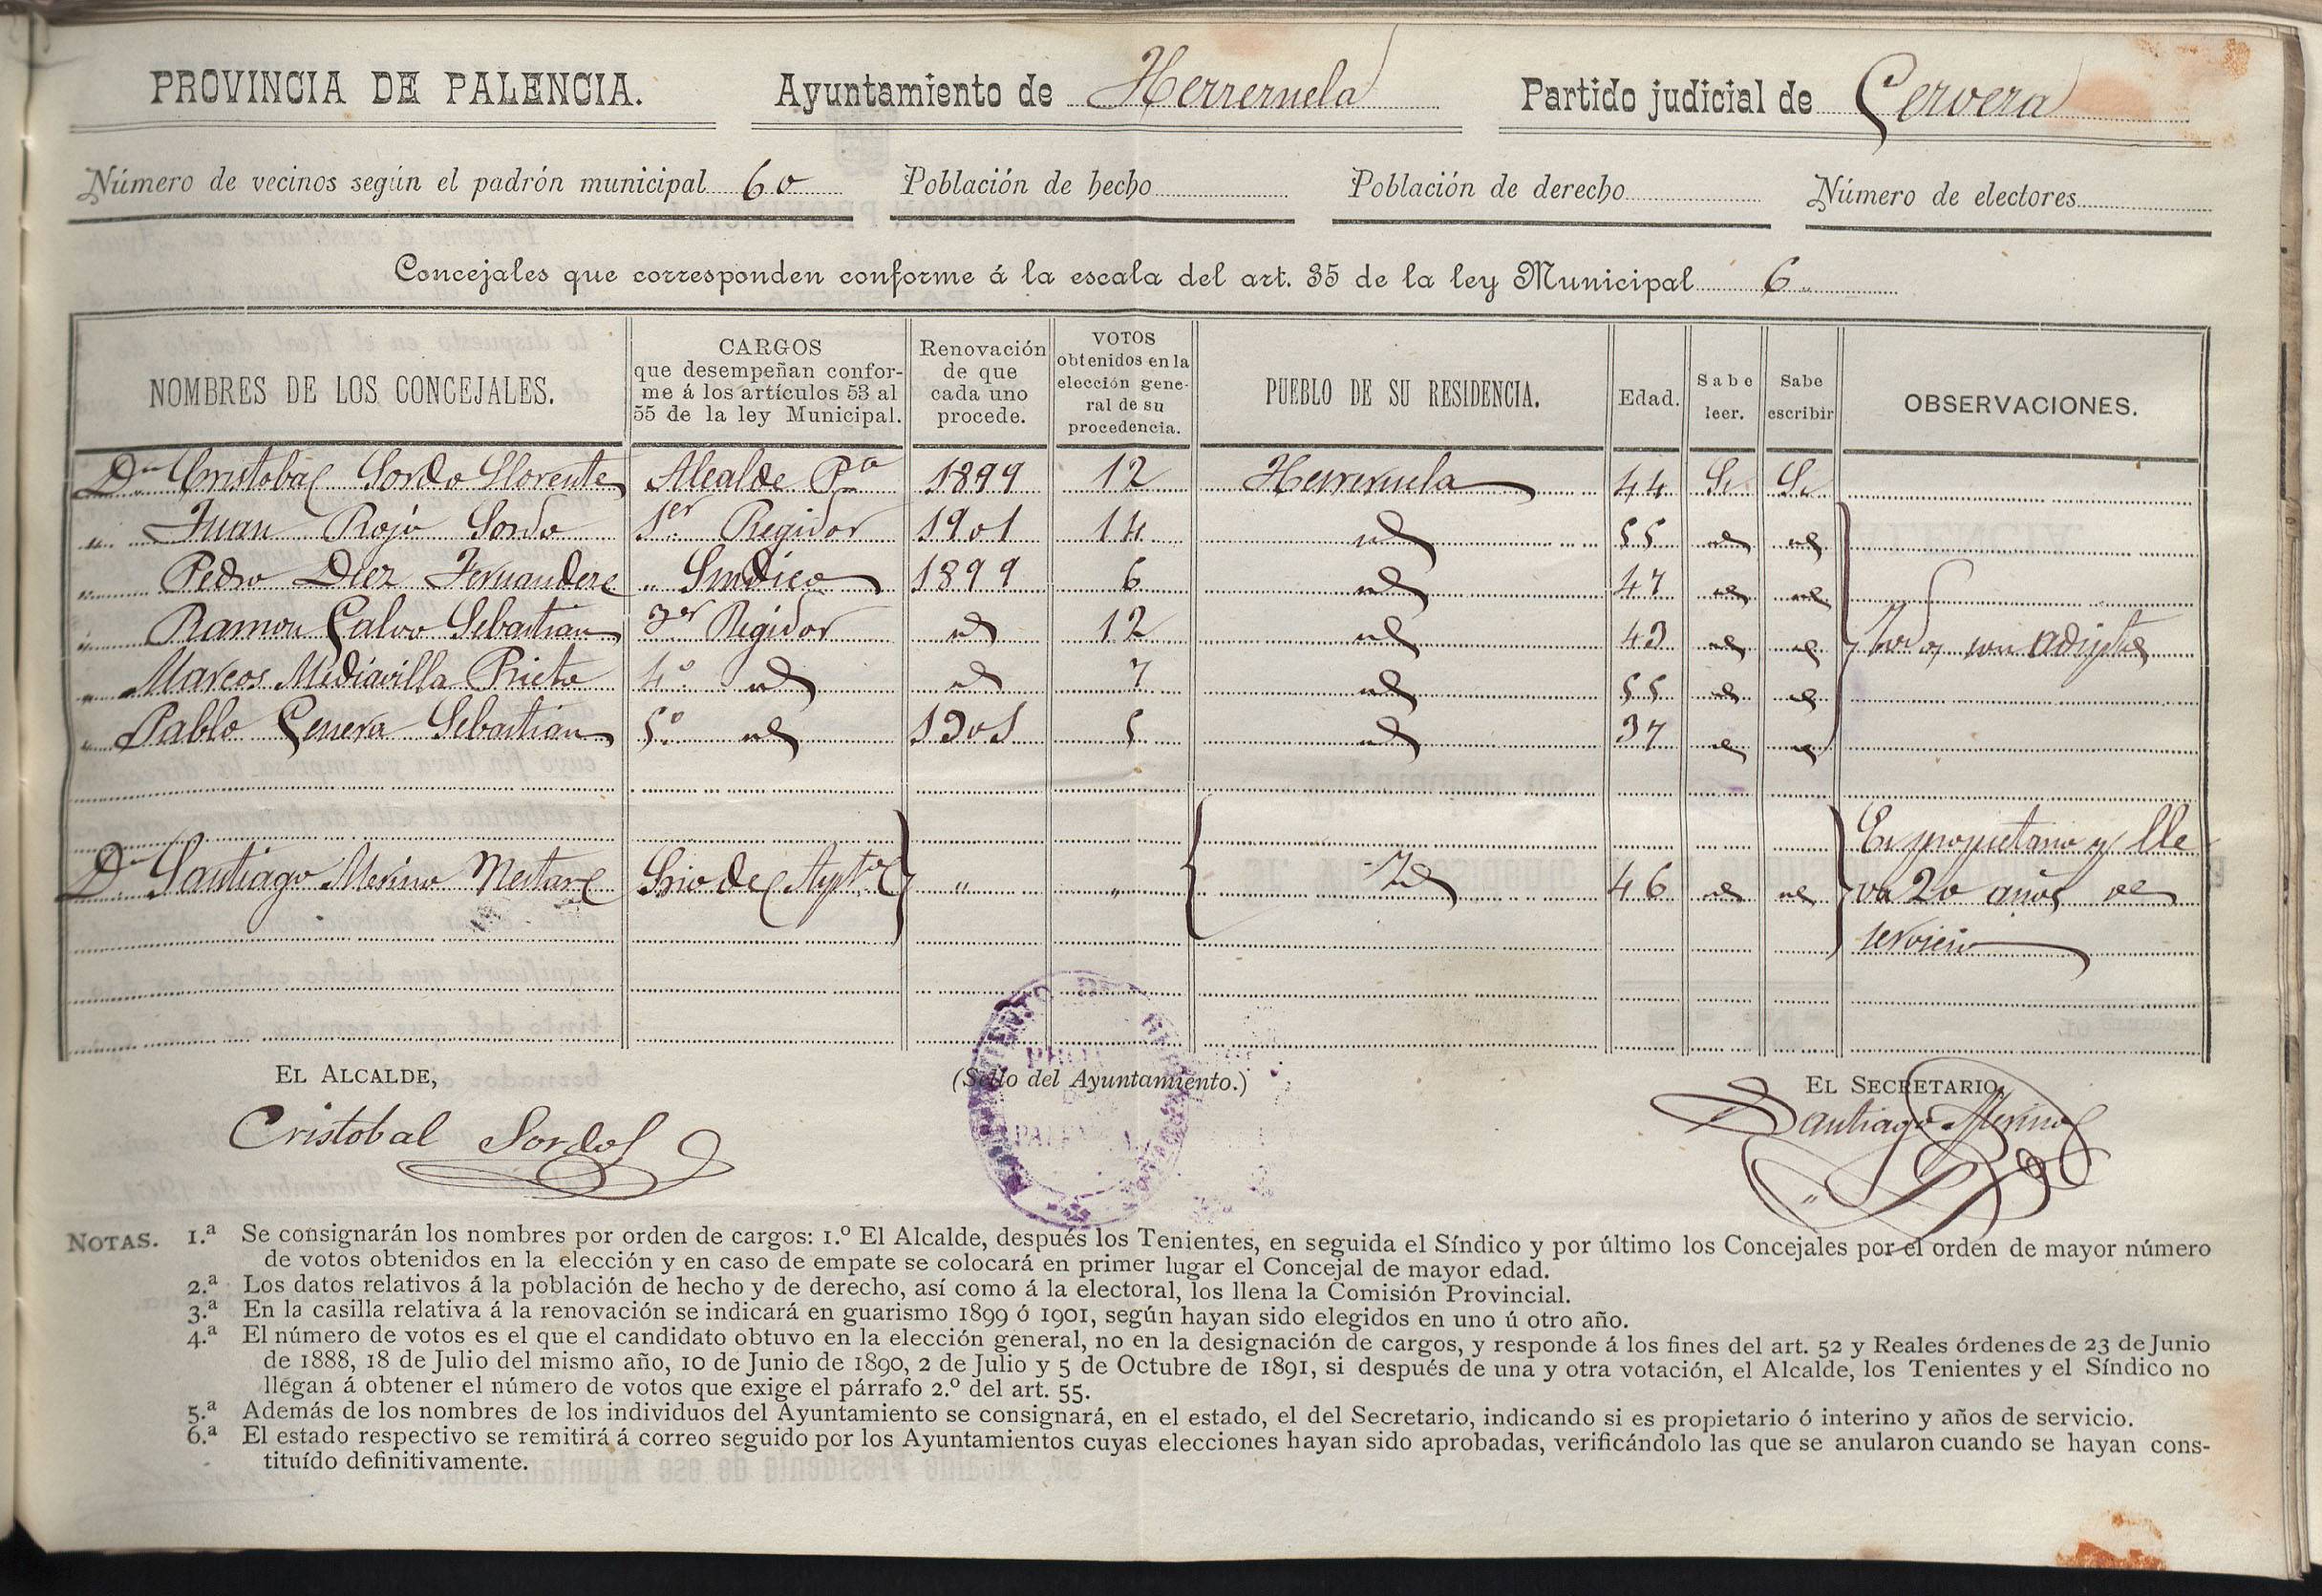 PROVINCIA DE PALENCIA. Ayuntamiento de Herreruela Partido judicial de Cervera
Número de vecinos según el padrón municipal 60 Población de hecho Población de derecho Número de electores
Concejales que corresponden conforme á la escala del art. 35 de la ley Municipal 6.
NOMBRES DE LOS CONCEJALES. CARGOS que desempeñan confor- me á los artículos 53 al 55 de la ley Municipal. Renovación de que cada uno procede. VOTOS obtenidos en la elección gene- ral de su procedencia. PUEBLO DE SU RESIDENCIA. Edad. Sabe leer. Sabe escribir OBSERVACIONES.
Dn Cristobal Sordo Llorente Alcalde Pte 1899 12 Herreruela 44 Si Si
" Juan Rojo Sordo 1er Regidor 1901 14 id 55 id id
" Pedro Diez Fernandez " Sindico 1899 6 id 47 id id
" Ramon Calvo Sebastian 3er Regidor id 12 id 43 id id Todos son
" Marcos Mediavilla Prieto 4º id id 7 id 55 id id
" Pablo Cenera Sebastian 5º id 1901 5 id 37 id id
Dn Santiago Merino Srio del Aytº " " Id 46 id id En propietario y lle
va 20 años de
servicio
EL ALCALDE, (Sello del Ayuntamiento.) EL SECRETARIO,
Cristobal Sordo Santiago Merino
NOTAS. 1.ª Se consignarán los nombres por orden de cargos: 1.º El Alcalde, después los Tenientes, en seguida el Síndico y por último los Concejales por el orden de mayor número
de votos obtenidos en la elección y en caso de empate se colocará en primer lugar el Concejal de mayor edad.
2.ª Los datos relativos á la población de hecho y de derecho, así como á la electoral, los llena la Comisión Provincial.
3.ª En la casilla relativa á la renovación se indicará en guarismo 1899 ó 1901, según hayan sido elegidos en uno ú otro año.
4.ª El número de votos es el que el candidato obtuvo en la elección general, no en la designación de cargos, y responde á los fines del art. 52 y Reales órdenes de 23 de Junio
de 1888, 18 de Julio del mismo año, 10 de Junio de 1890, 2 de Julio y 5 de Octubre de 1891, si después de una y otra votación, el Alcalde, los Tenientes y el Síndico no
llegan á obtener el número de votos que exige el párrafo 2.º del art. 55.
5.ª Además de los nombres de los individuos del Ayuntamiento se consignará, en el estado, el del Secretario, indicando si es propietario ó interino y años de servicio.
6.ª El estado respectivo se remitirá á correo seguido por los Ayuntamientos cuyas elecciones hayan sido aprobadas, verificándolo las que se anularon cuando se hayan cons-
tituído definitivamente.